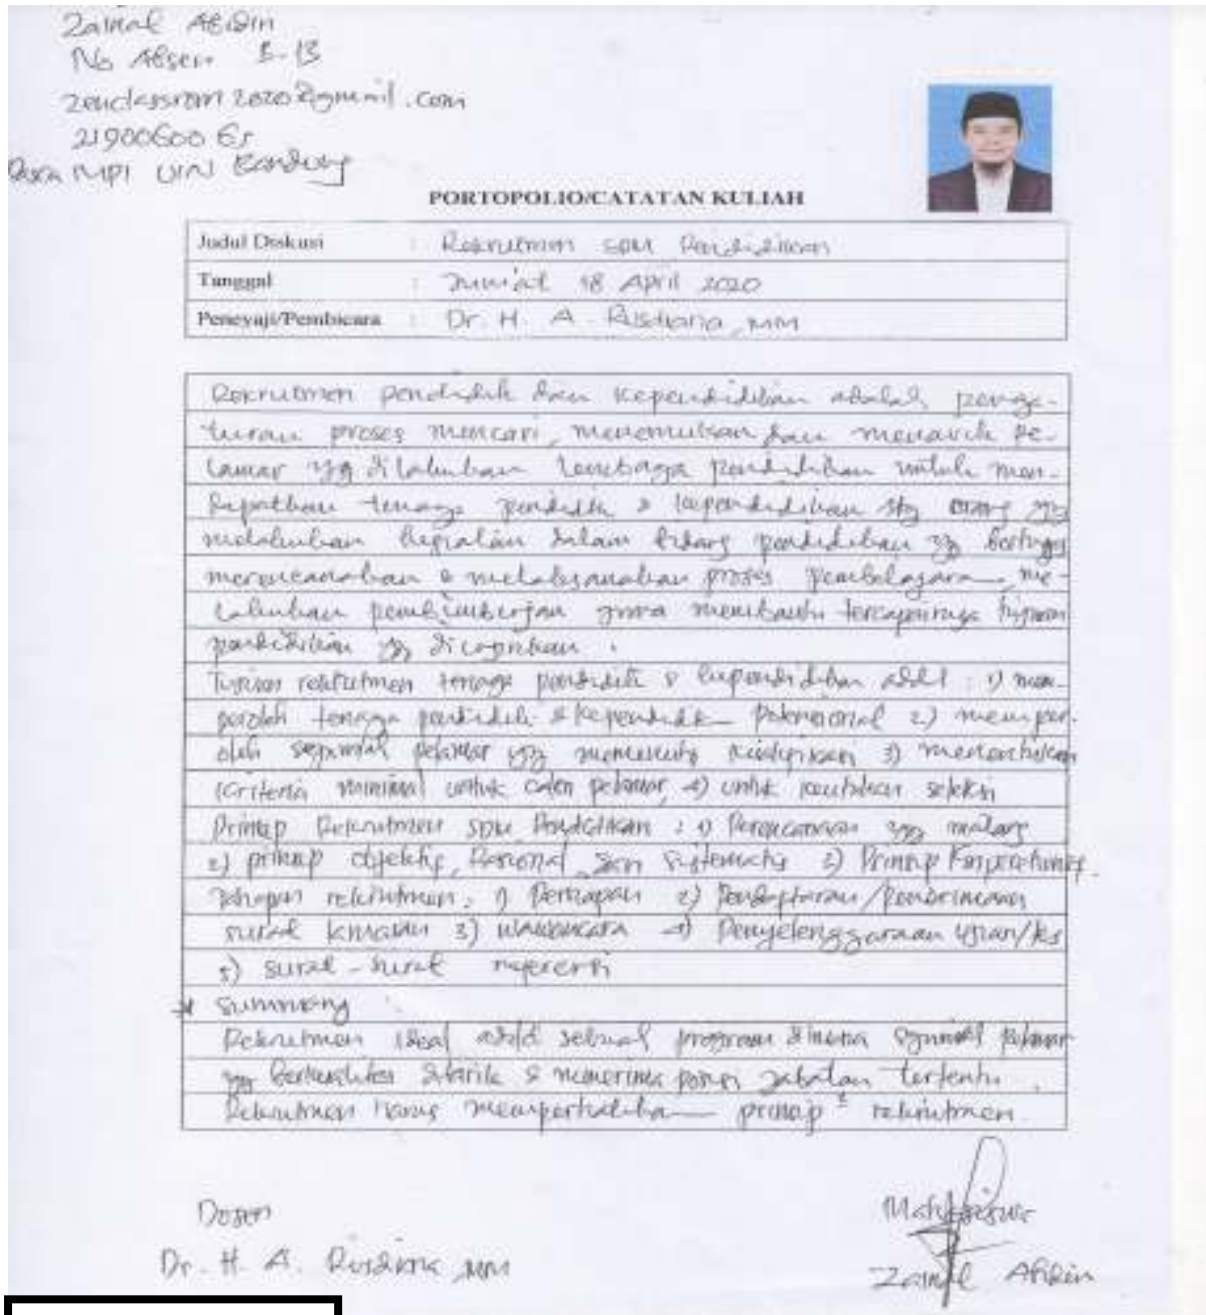 Zainal Abidin
No Absen B-13
zenclassroom2020@gmail.com
2190060065
Pasca MPI UIN Bandung
PORTOPOLIO/CATATAN KULIAH
Judul Diskusi : Rekrutmen SDM Pendidikan
Tanggal : Jum'at 18 April 2020
Peneyaji/Pembicara : Dr. H. A. Rusdiana, MM
Rekrutmen pendidik dan kependidikan adalah penga-
turan proses mencari, menemukan dan menarik pe-
lamar yg dilakukan lembaga pendidikan untuk men-
dapatkan tenaga pendidik & kependidikan sbg orang yg
melakukan kegiatan dalam bidang pendidikan yg bertugas
merencanakan & melaksanakan proses pembelajaran, me-
lakukan pembimbingan guna membantu tercapainya tujuan
pendidikan yg diinginkan.
Tujuan rekrutmen tenaga pendidik & kependidikan adl : 1) mem-
peroleh tenaga pendidik & kependidik Potensional 2) memper-
oleh sejumlah pelamar yg memenuhi kualifikasi 3) menentukan
kriteria minimal untuk calon pelamar, 4) untuk kebutuhan seleksi
Prinsip Rekrutmen SDM Pendidikan : 1) Perencanaan yg matang
2) prinsip objektif, Rasional, dan sistematis 3) Prinsip
Tahapan rekrutmen, 1) Persiapan 2) Pendaftaran/Penerimaan
surat lamaran 3) wawancara 4) Penyelenggaraan ujian/tes
5) surat-surat referensi
* Summary :
Rekrutmen ideal adld sebuah program dimana sejumlah pelamar
yg berkualitas ditarik & menerima posisi jabatan tertentu.
Rekrutmen Harus memperhatikan prinsip² rekrutmen.
Dosen
Dr. H. A. Rusdiana MM
Mahasiswa
Zainal Abidin